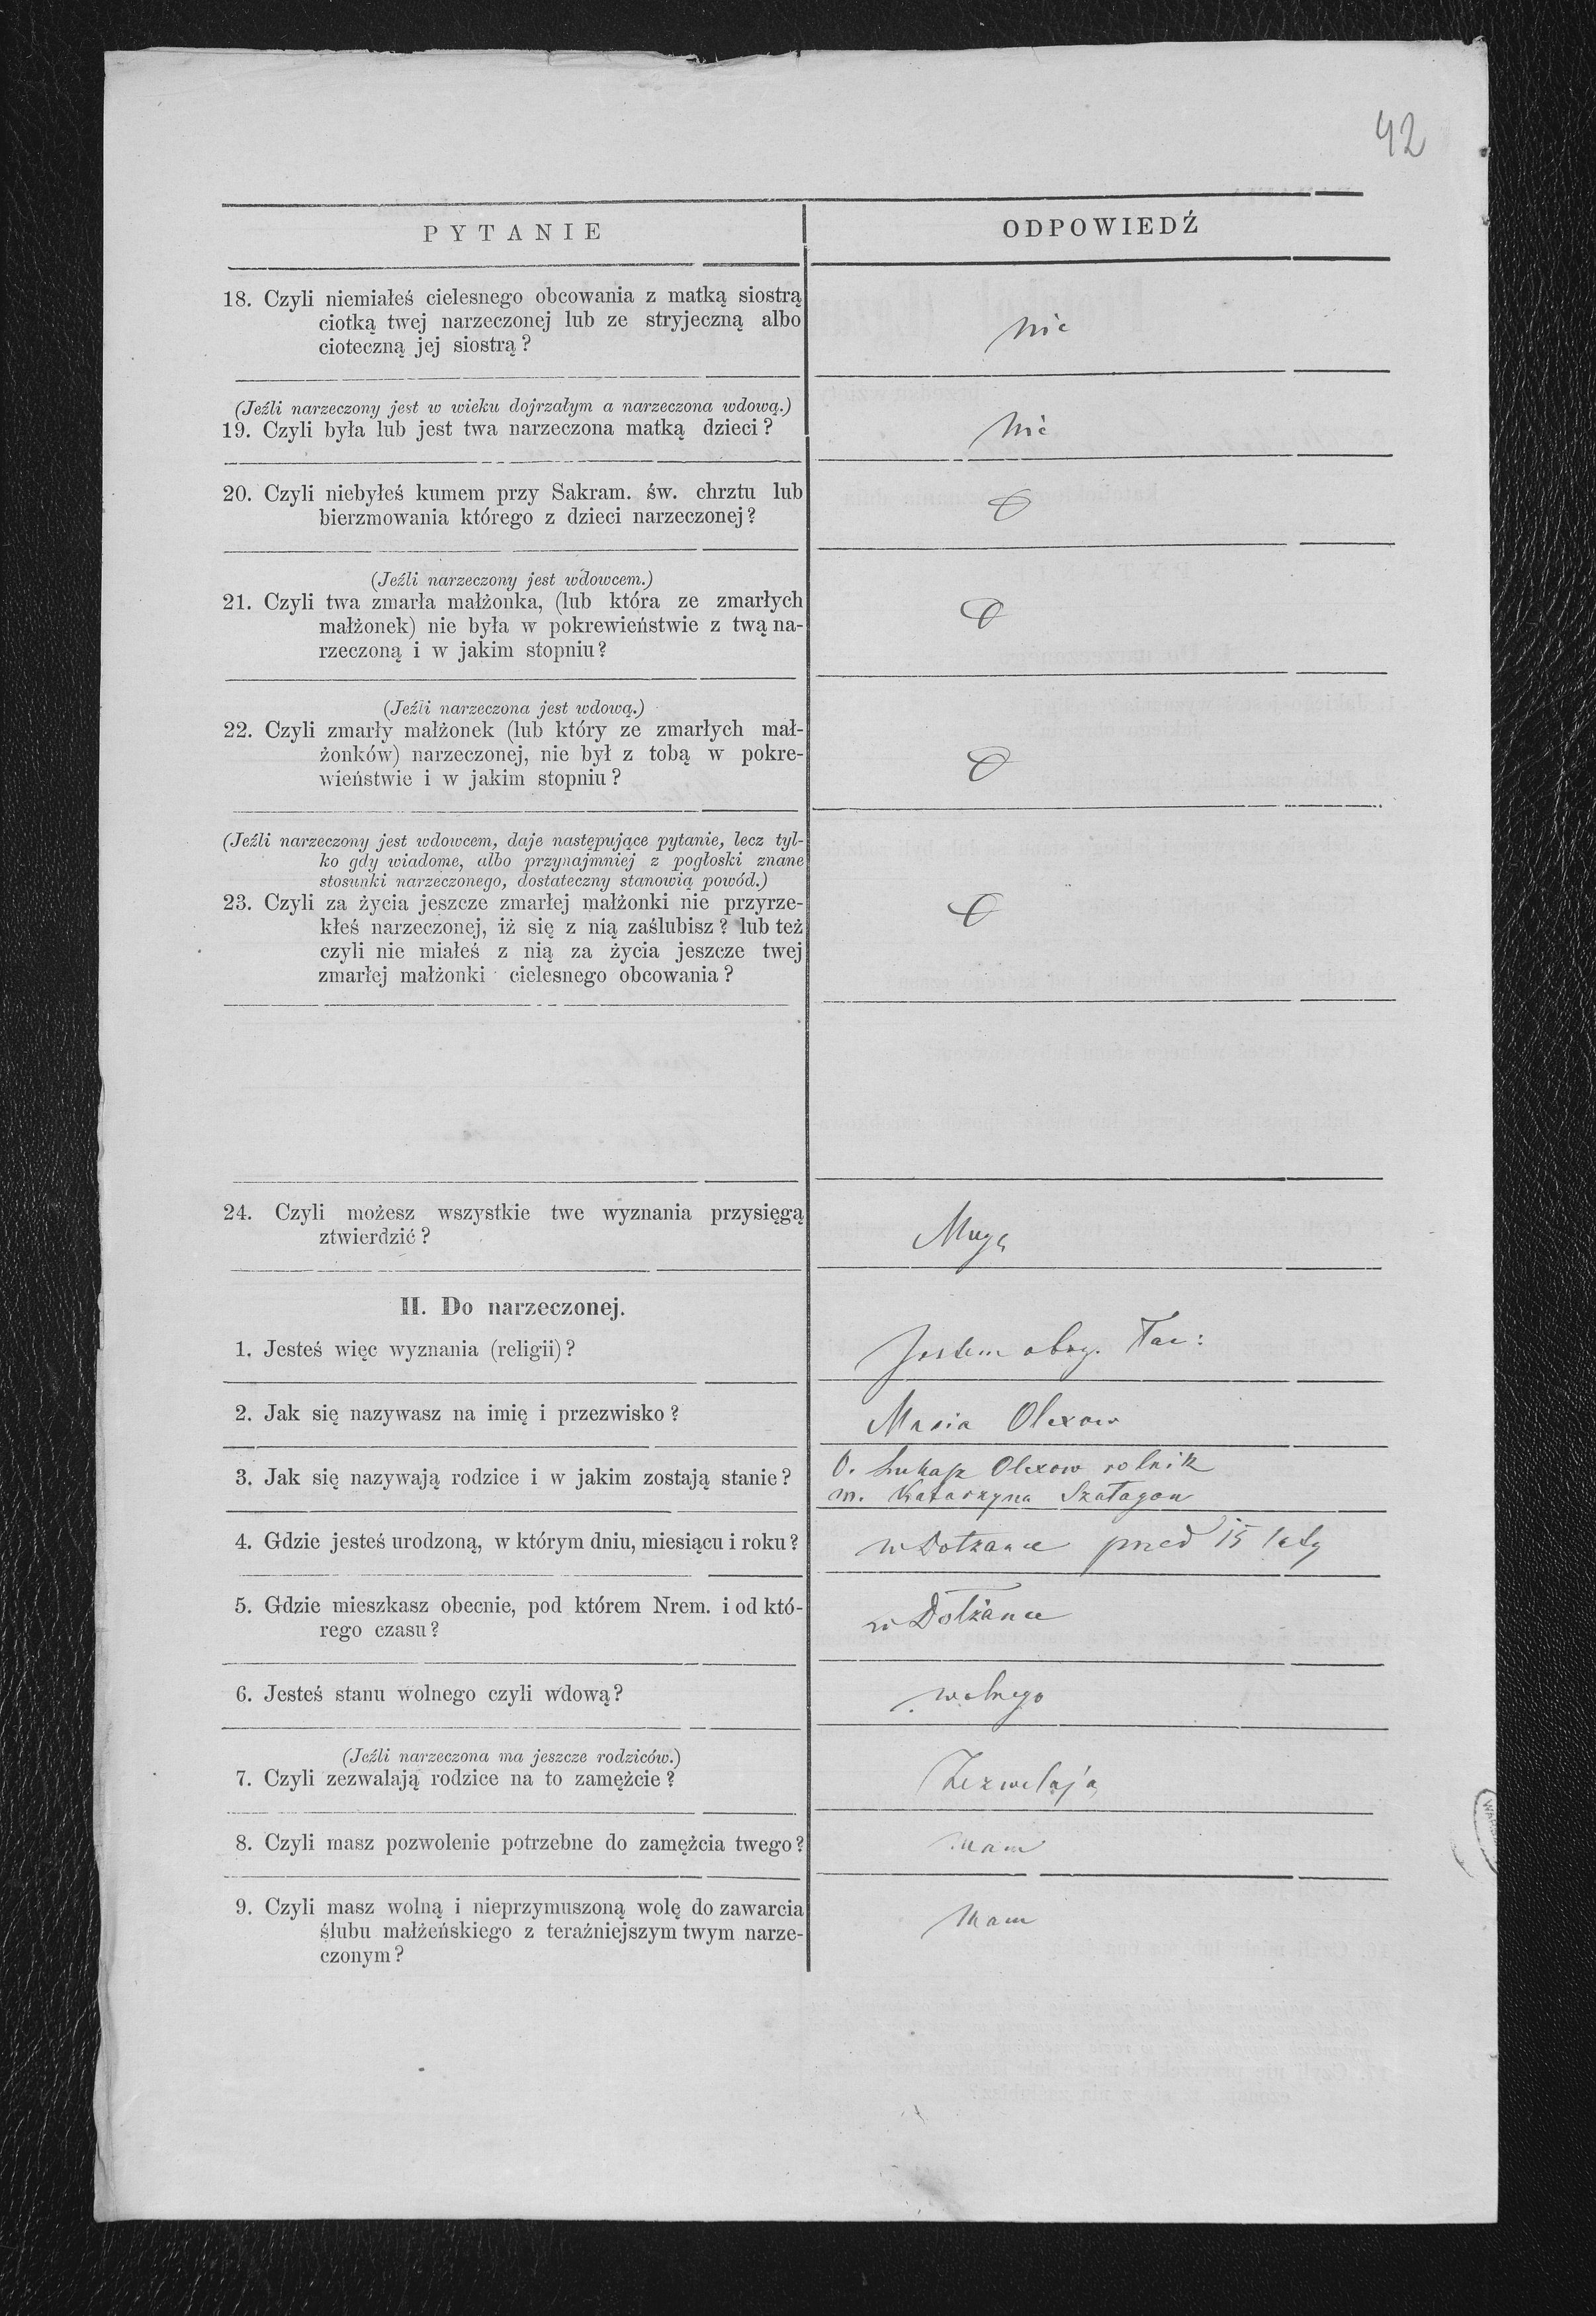 42
PYTANIE
ODPOWIEDŹ
18. Czyli niemiałeś cielesnego obcowania z matką siostrą
ciotką twej narzeczonej lub ze stryjeczną albo
cioteczną jej siostrą?
Nie
(Jeźli narzeczony jest w wieku dojrzałym a narzeczona wdową.)
19. Czyli była lub jest twa narzeczona matką dzieci?
Nie
20. Czyli niebyłeś kumem przy Sakram. św. chrztu lub
bierzmowania którego z dzieci narzeczonej?
(Jeźli narzeczony jest wdowcem.)
21. Czyli twa zmarła małżonka, (lub która ze zmarłych
małżonek) nie była w pokrewieństwie z twą na-
rzeczoną i w jakim stopniu?
(Jeźli narzeczona jest wdową.)
22. Czyli zmarły małżonek (lub który ze zmarłych mał-
żonków) narzeczonej, nie był z tobą w pokre-
wieństwie i w jakim stopniu?
(Jeźli narzeczony jest wdowcem, daje następujące pytanie, lecz tyl-
ko gdy wiadome, albo przynajmniej z pogłoski znane
stosunki narzeczonego, dostateczny stanowią powód.)
23. Czyli za życia jeszcze zmarłej małżonki nie przyrze-
kłeś narzeczonej, iż się z nią zaślubisz? lub też
czyli nie miałeś z nią za życia jeszcze twej
zmarłej małżonki cielesnego obcowania?
24. Czyli możesz wszystkie twe wyznania przysięgą
ztwierdzić?
Mogę
II. Do narzeczonej.
1. Jesteś więc wyznania (religii)?
Jestem obrz. łac:
2. Jak się nazywasz na imię i przezwisko?
Maria Olexow
3. Jak się nazywają rodzice i w jakim zostają stanie?
O. Łukasz Olexow rolnik
m. Katarzyna Szałagan
4. Gdzie jesteś urodzoną, w którym dniu, miesiącu i roku?
w Dołżance przed 15 laty
5. Gdzie mieszkasz obecnie, pod którem Nrem. i od któ-
rego czasu?
w Dołżance
6. Jesteś stanu wolnego czyli wdową?
wolnego
(Jeźli narzeczona ma jeszcze rodziców.)
7. Czyli zezwalają rodzice na to zamężcie?
Zezwalają
8. Czyli masz pozwolenie potrzebne do zamężcia twego?
mam
9. Czyli masz wolną i nieprzymuszoną wolę do zawarcia
ślubu małżeńskiego z teraźniejszym twym narze-
czonym?
Mam